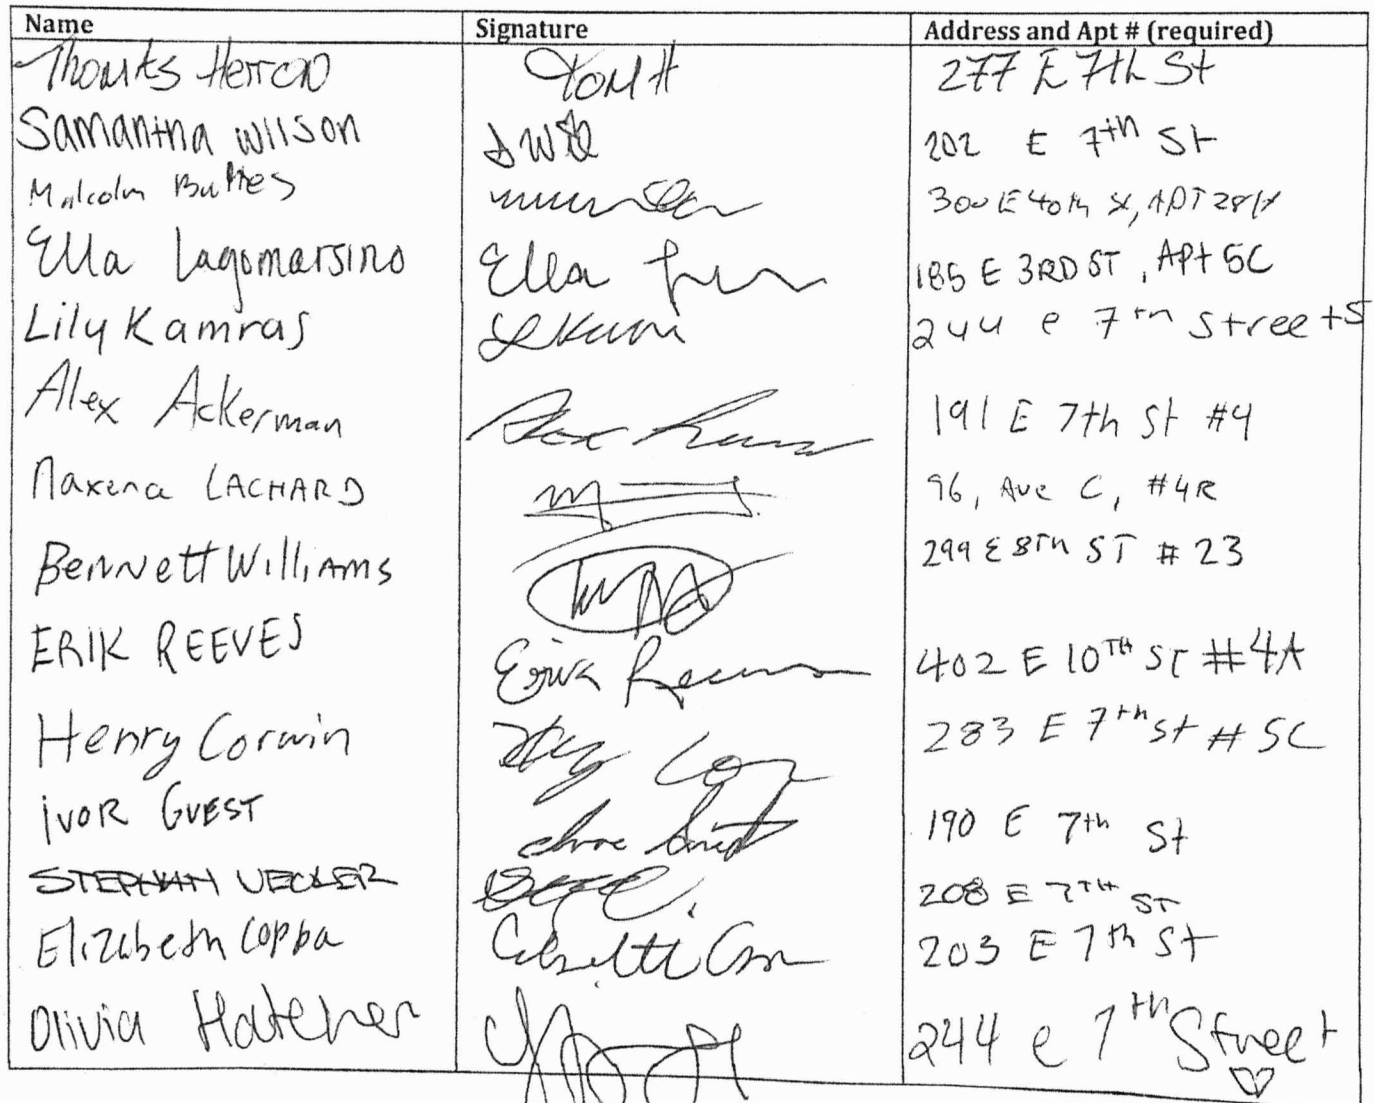 Name Signature Address and Apt # (required)
Thomas Herron TOM H 277 E 7th St
Samantha Wilson 202 E 7th St
Malcolm 300 E 40th St, APT 28
Ella Lagomarsino Ella 185 E 3RD ST, Apt 5C
Lily Kamras 244 e 7th Street
Alex Ackerman Alex 191 E 7th St #4
LACHARD 96, Ave C, #4R
Bennett Williams 299 E 8Th ST # 23
ERIK REEVES Erik Reeves 402 E 10TH ST #4A
Henry Corwin 283 E 7th St # 5C
IVOR GUEST 190 E 7th St
208 E 7TH ST
Elizabeth Coppa 203 E 7th St
Olivia Hatcher 244 e 7th Street